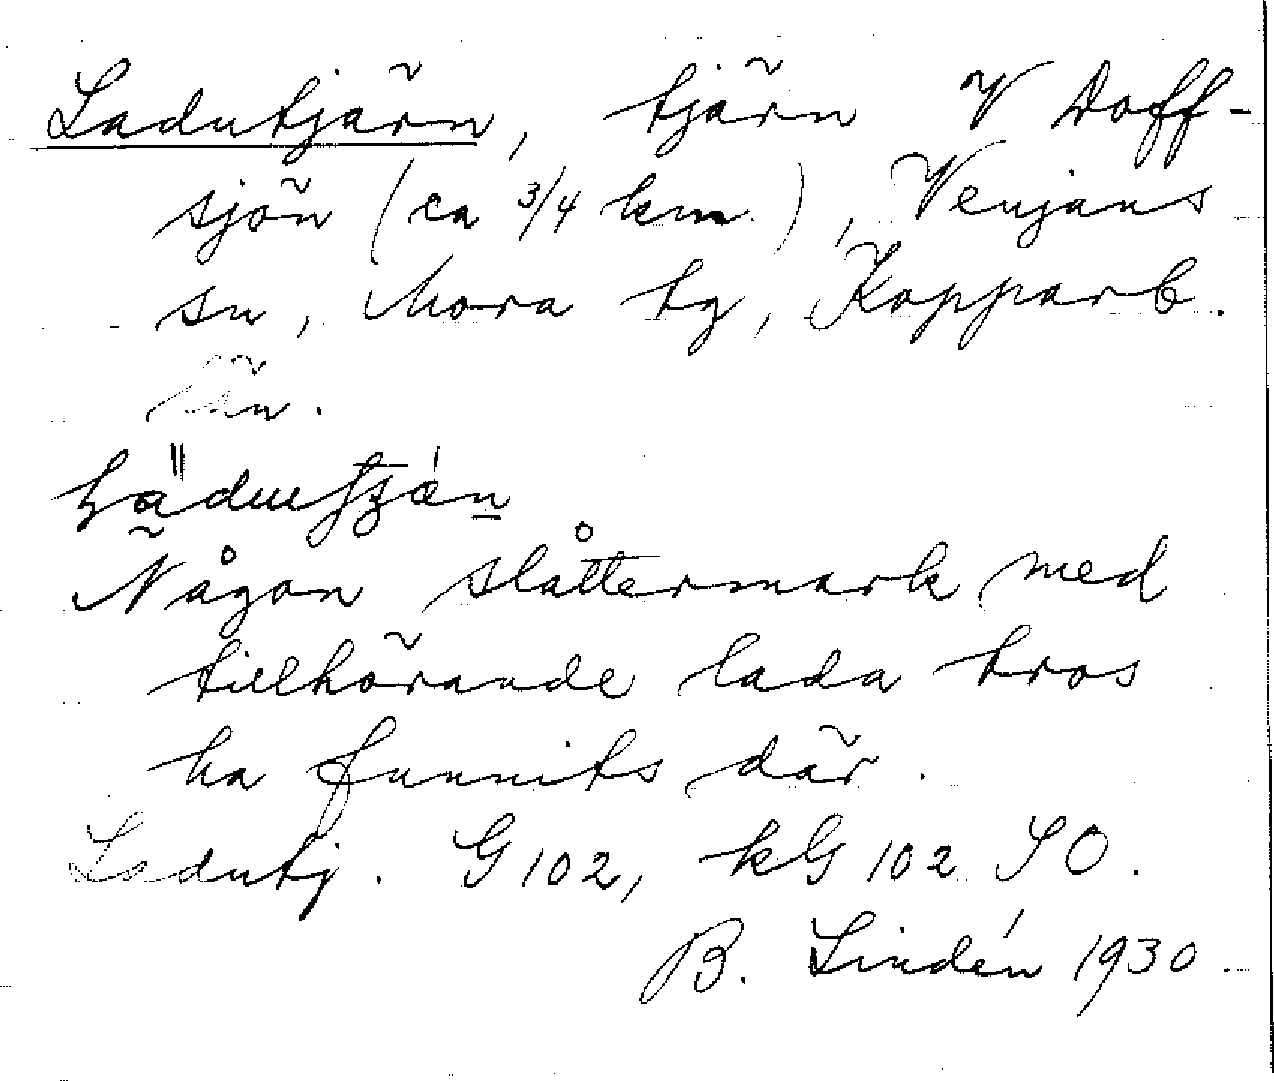 Ladutjärn, tjärn V Doff-
sjön (ca 3/4 km.), Venjans
sn, Mora tg, Kopparb.
län.
Någon slåttermark med
tillhörande lada tros
ha funnits där.
Ladutj. G 102, kG 102 SO.
B. Lindén 1930.